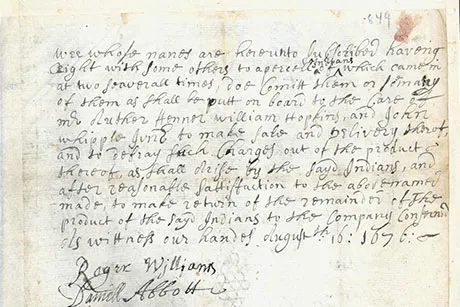 0644
wee whose names are hereunto subscribed having
Right with some others to a percell of Indians which came in
at two severall times, doe Comitt them or so many
of them as shall be putt on board to the Care of
mr Auther Fenner William Hopkins, and John
Whipple Junr to make sale and Delivery therof,
and to defray such Charges out of the product
thereof, as shall Arise by the sayd Indians, and
after reasonable sattisfaction to the abovenamed
made, to make return of the remainder of The
product of the sayd Indians to the Company Conserned
As wittness our handes August th: 16: 1676:
Roger Williams
Daniell Abbott